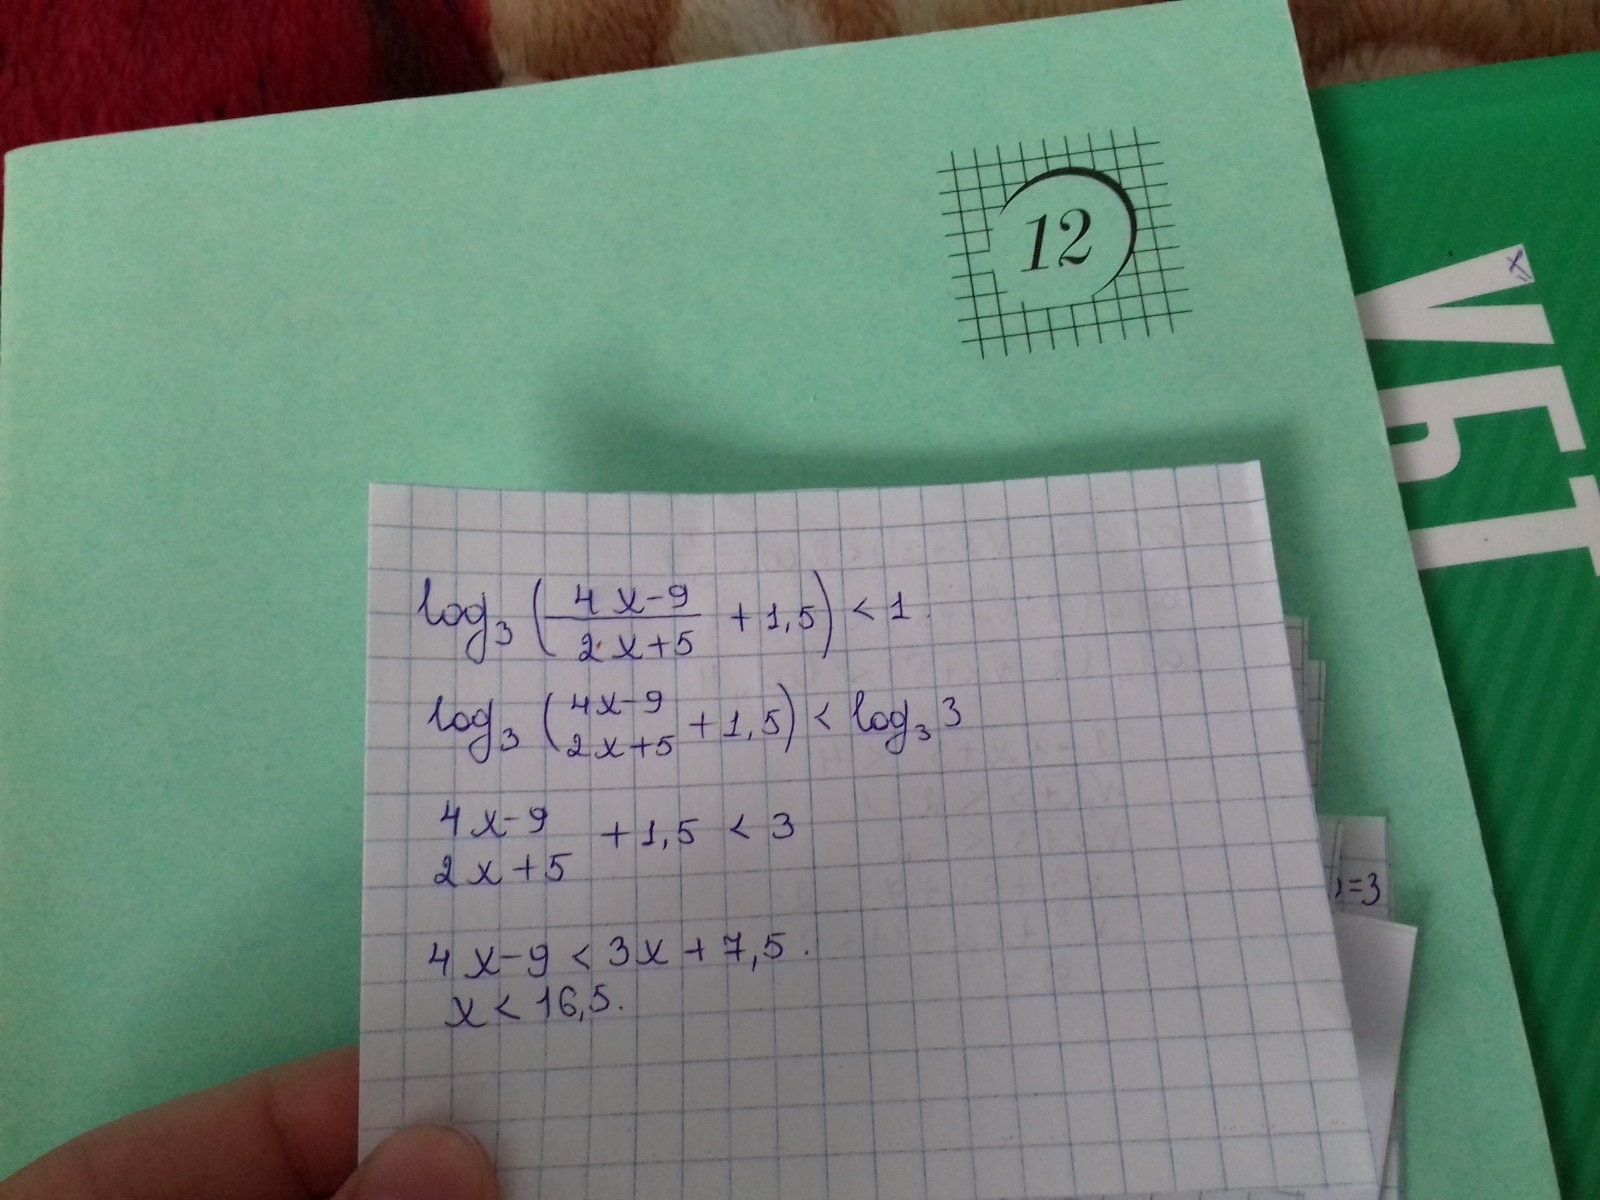 12
ҰБТ
log₃ ((4x-9)/(2x+5) + 1,5) < 1.
log₃ ((4x-9)/(2x+5) + 1,5) < log₃ 3
(4x-9)/(2x+5) + 1,5 < 3
4x-9 < 3x + 7,5.
x < 16,5.
)=3